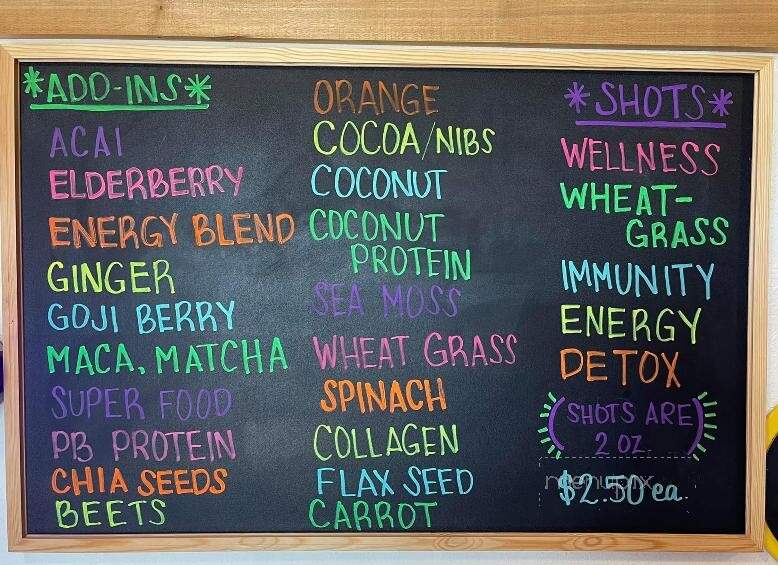 *ADD-INS*
ACAI
ELDERBERRY
ENERGY BLEND
GINGER
GOJI BERRY
MACA, MATCHA
SUPER FOOD
PB PROTEIN
CHIA SEEDS
BEETS
ORANGE
COCOA/NIBS
COCONUT
COCONUT
PROTEIN
SEA MOSS
WHEAT GRASS
SPINACH
COLLAGEN
FLAX SEED
CARROT
*SHOTS*
WELLNESS
WHEAT-
GRASS
IMMUNITY
ENERGY
DETOX
(SHOTS ARE
2 OZ.)
menupix
$2.50 ea.